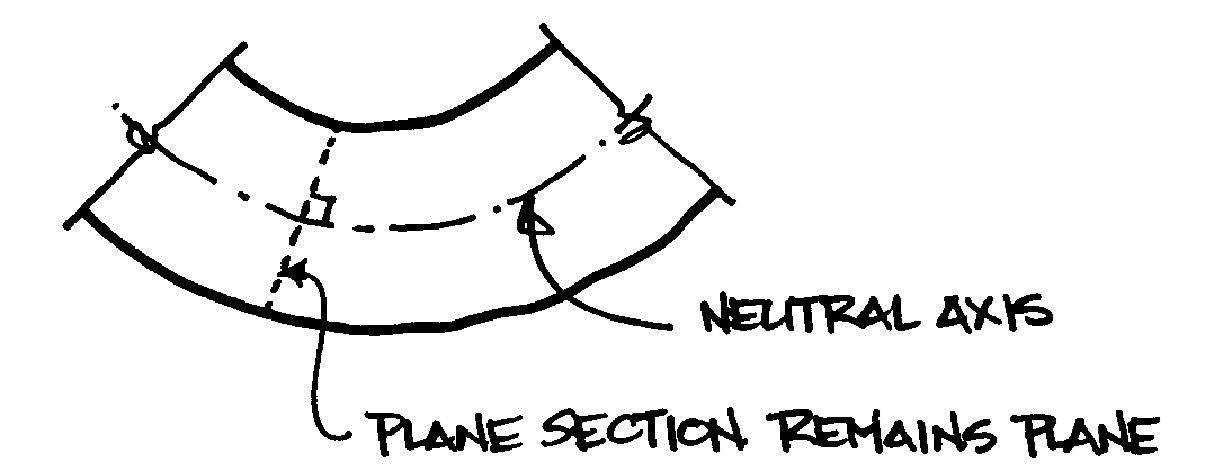 NEUTRAL AXIS
PLANE SECTION REMAINS PLANE